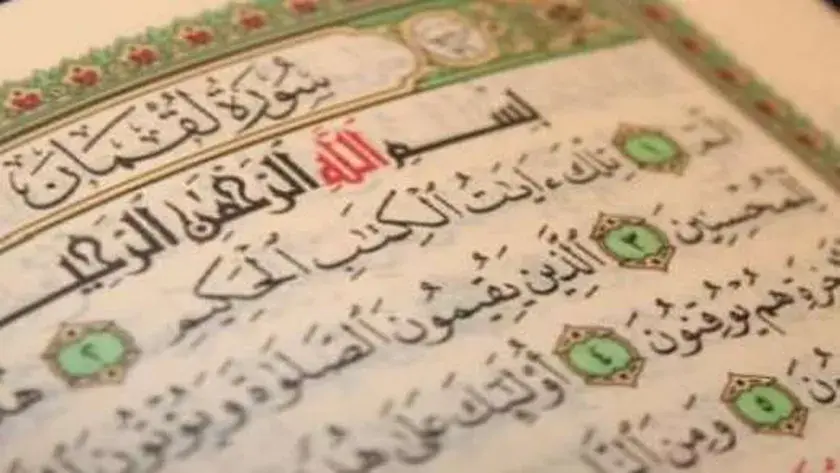 سُورَةُ لُقْمَانَ
بِسْمِ اللَّهِ الرَّحْمَٰنِ الرَّحِيمِ
الٓمٓ ١ تِلْكَ ءَايَٰتُ ٱلْكِتَٰبِ ٱلْحَكِيمِ ٢
لِّلْمُحْسِنِينَ ٣ ٱلَّذِينَ يُقِيمُونَ ٱلصَّلَوٰةَ وَيُؤْتُونَ
هُمْ يُوقِنُونَ ٤ أُو۟لَٰٓئِكَ عَلَىٰ
٥ وَمِنَ ٱلنَّاسِ